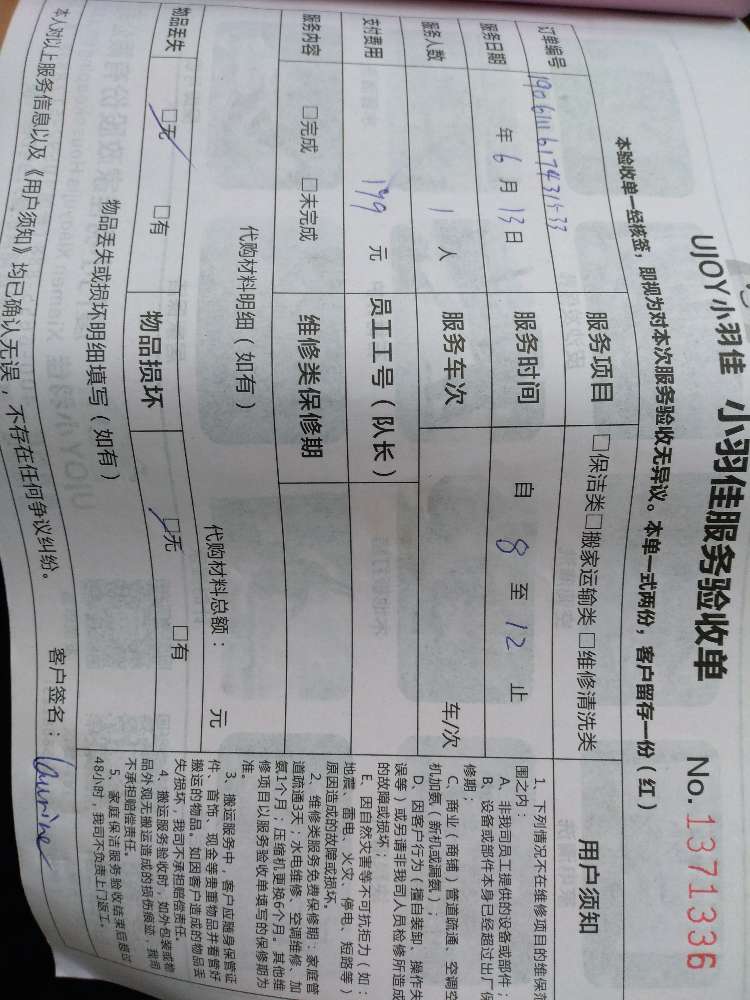 UJOY小羽佳 小羽佳服务验收单 No.1371336
本验收单一经核签，即视为对本次服务验收无异议。本单一式两份，客户留存一份（红）
订单编号 服务项目 □保洁类□搬家运输类 □维修清洗类
服务日期 年 6 月 13 日 服务时间 自 8 至 12 止
服务人数 1 人 服务车次 车/次
支付费用 199 元 员工工号（队长）
服务内容 □完成 □未完成 维修类保修期
代购材料明细（如有） 代购材料总额： 元
物品丢失 □无 □有 物品损坏 □无 □有
物品丢失或损坏明细填写（如有）
本人对以上服务信息以及《用户须知》均已确认无误，不存在任何争议纠纷。
客户签名：Laurine
用户须知
1、下列情况不在维修项目的维保范
围之内：
A、非我司员工提供的设备或部件；
B、设备或部件本身已经超过出厂保
修期；
C、商业（商铺）管道疏通、空调空
机加氨（新机或漏氨）；
D、因客户行为（擅自装卸、操作失
误等）或另请非我司人员检修所造成
的故障或损坏；
E、因自然灾害等不可抗拒力（如：
地震、雷电、火灾、停电、短路等）
原因造成的故障或损坏。
2、维修类服务免费保修期：家庭管
道疏通3天；水电维修、空调维修、加
氨1个月；压缩机更换6个月。其他维
修项目以服务验收单填写的保修期为
准。
3、搬运服务中，客户应随身保管证
件、首饰、现金等贵重物品并看管好
搬运的物品。如因客户造成的物品丢
失/损坏，我司不承担赔偿责任。
4、搬运服务验收时，如外包装或物
品外观无搬运造成的损伤痕迹，我司
不承担赔偿责任。
5、家庭保洁服务验收结束后超过
48小时，我司不负责上门返工。